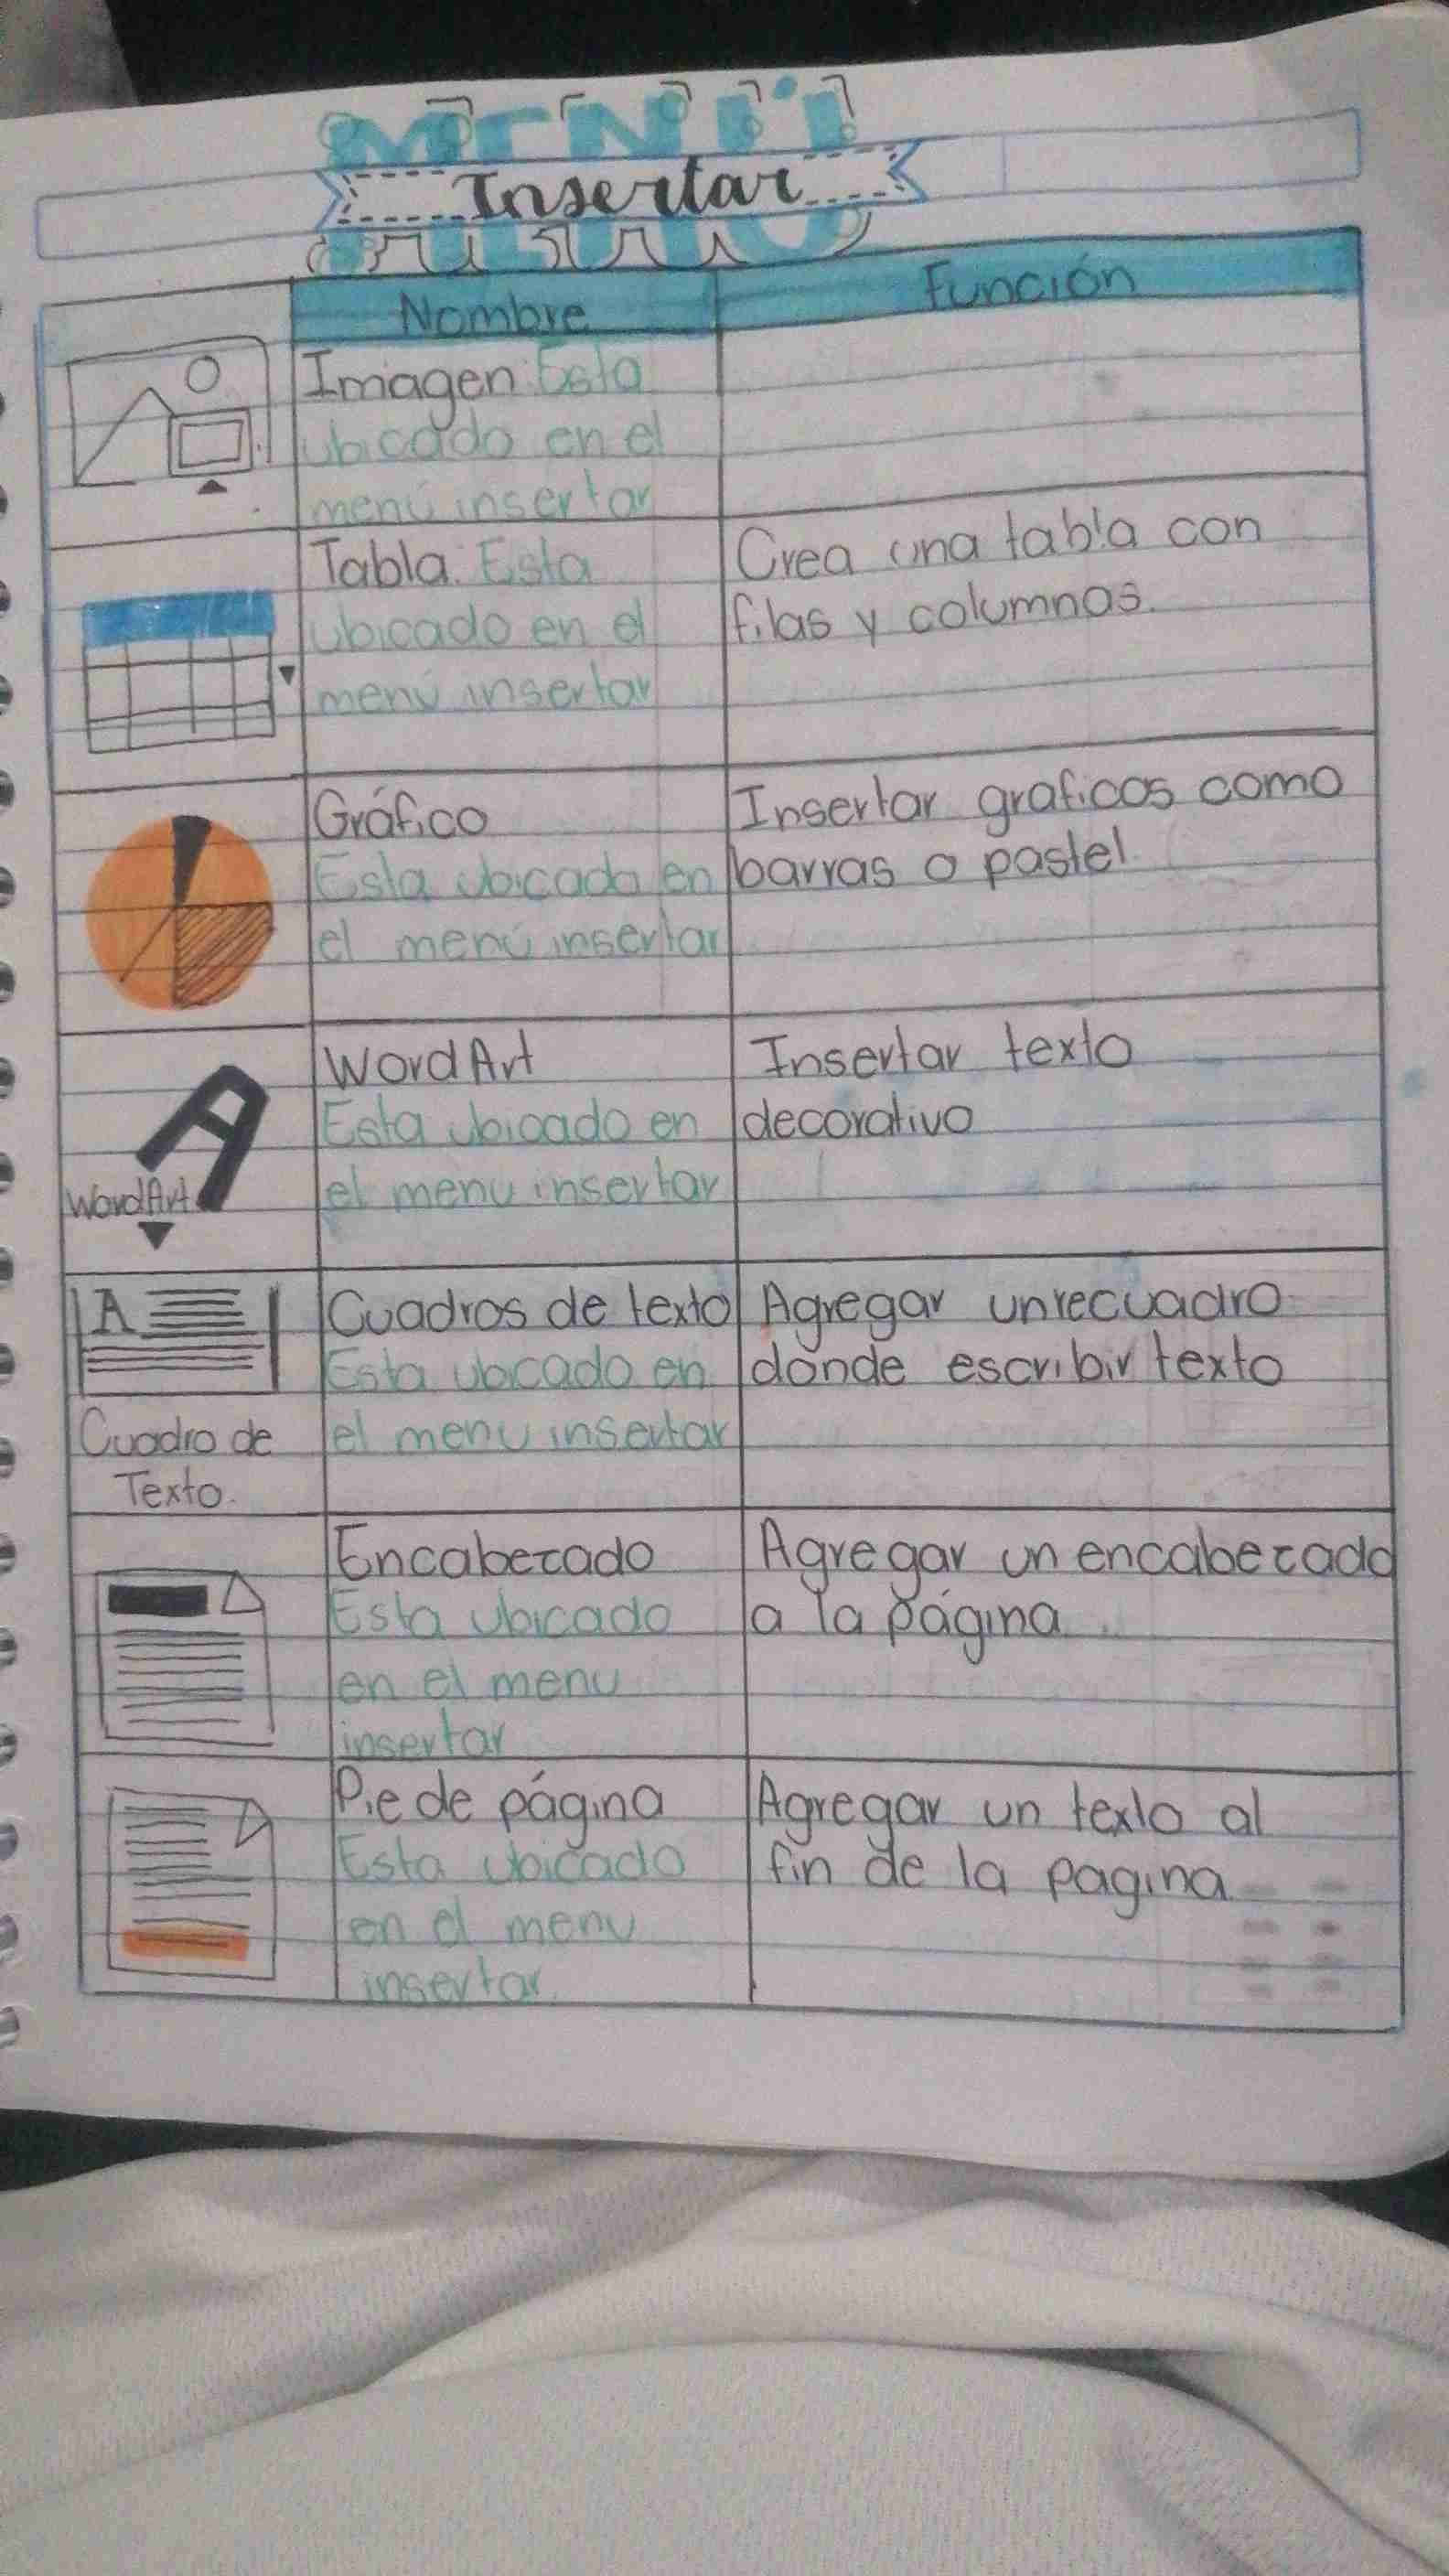 MENÚ
Insertar
Nombre
Función
Imagen: Esta
ubicado en el
menú insertar
Tabla: Esta
ubicado en el
menú insertar
Crea una tabla con
filas y columnas.
Gráfico
Esta ubicado en
el menú insertar
Insertar graficos como
barras o pastel.
WordArt
WordArt
Esta ubicado en
el menu insertar
Insertar texto
decorativo
Cuadro de
Texto.
Cuadros de texto
Esta ubicado en
el menu insertar
Agregar un recuadro
dónde escribir texto
Encabezado
Esta ubicado
en el menu
insertar
Agregar un encabezado
a la página.
Pie de página
Esta ubicado
en el menu
insertar.
Agregar un texto al
fin de la pagina.